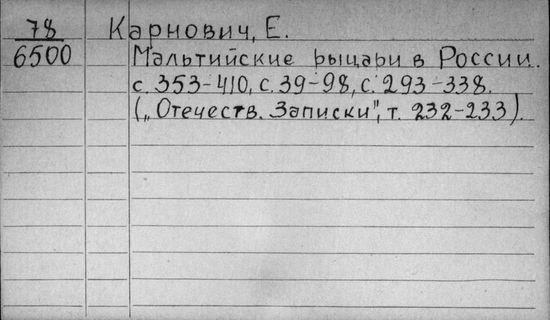 78 Карнович, Е.
6500 Мальтийские рыцари в России.
с. 353-410, с. 39-98, с. 293-338.
(„Отечеств. Записки", т. 232-233).